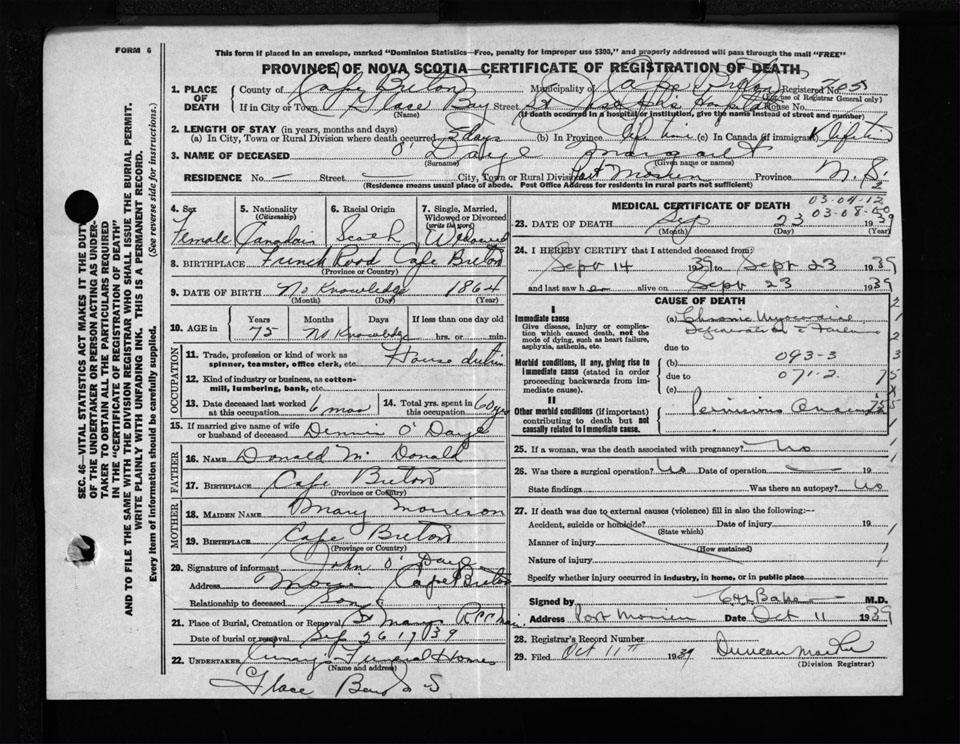 FORM 6
This form if placed in an envelope, marked "Dominion Statistics—Free, penalty for improper use $300," and properly addressed will pass through the mail "FREE"
PROVINCE OF NOVA SCOTIA—CERTIFICATE OF REGISTRATION OF DEATH
1. PLACE OF DEATH
County of Cape Breton Municipality of Cape Breton Registered No. 705
(For use of Registrar General only)
If in City or Town Glace Bay Street St Josephs Hospital House No.
(Name) (If death occurred in a hospital or institution, give the name instead of street and number)
2. LENGTH OF STAY (in years, months and days)
(a) In City, Town or Rural Division where death occurred 3 days (b) In Province life time (c) In Canada (if immigrant) life time
3. NAME OF DECEASED O'Daye Margaret
(Surname) (Given name or names)
RESIDENCE No. — Street — City, Town or Rural Division Port Morien Province N. S.
(Residence means usual place of abode. Post Office Address for residents in rural parts not sufficient)
4. Sex Female
5. Nationality (Citizenship) Canadain
6. Racial Origin Scotch
7. Single, Married, Widowed or Divorced (write the word) Widowed
8. BIRTHPLACE French Road Cape Breton
(Province or Country)
9. DATE OF BIRTH No Knowledge 1864
(Month) (Day) (Year)
10. AGE in Years Months Days If less than one day old
75 No Knowledge hrs. or min.
OCCUPATION
11. Trade, profession or kind of work as spinner, teamster, office clerk, etc. House
12. Kind of industry or business, as cotton-mill, lumbering, bank, etc.
13. Date deceased last worked at this occupation 6 mos
14. Total yrs. spent in this occupation 60 yrs
15. If married give name of wife or husband of deceased Dennis O'Daye
FATHER
16. NAME Donald Mc Donald
17. BIRTHPLACE Cape Breton
(Province or Country)
MOTHER
18. MAIDEN NAME Mary Morrison
19. BIRTHPLACE Cape Breton
(Province or Country)
20. Signature of informant John O'Daye
Address Cape Breton
Relationship to deceased Son
21. Place of Burial, Cremation or Removal St Marys
Date of burial or removal Sep 26 1939
22. UNDERTAKER Funeral Home
(Name and address)
Glace Bay N S
MEDICAL CERTIFICATE OF DEATH
03-04-12
03-08-00
23. DATE OF DEATH Sep 23 1939
(Month) (Day) (Year)
24. I HEREBY CERTIFY that I attended deceased from:
Sept 14 1939 to Sept 23 1939
and last saw her alive on Sept 23 1939
CAUSE OF DEATH
I
Immediate cause
Give disease, injury or complication which caused death, not the mode of dying, such as heart failure, asphyxia, asthenia, etc.
(a) Chronic Myocardial
Degeneration & Failure
due to
093-3
Morbid conditions, if any, giving rise to immediate cause (stated in order proceeding backwards from immediate cause).
(b)
due to 071-2
(c)
II
Other morbid conditions (if important) contributing to death but not causally related to immediate cause.
Pernicious Anaemia
25. If a woman, was the death associated with pregnancy? No
26. Was there a surgical operation? No Date of operation — 19
State findings Was there an autopsy? No
27. If death was due to external causes (violence) fill in also the following:—
Accident, suicide or homicide? Date of injury 19
(State which)
Manner of injury
(How sustained)
Nature of injury
Specify whether injury occurred in industry, in home, or in public place
Signed by Baker M.D.
Address Port Morien Date Oct 11 1939
28. Registrar's Record Number
29. Filed Oct 11th 1939 Duncan
(Division Registrar)
SEC. 46—VITAL STATISTICS ACT MAKES IT THE DUTY
OF THE UNDERTAKER OR PERSON ACTING AS UNDER-
TAKER TO OBTAIN ALL THE PARTICULARS REQUIRED
IN THE "CERTIFICATE OF REGISTRATION OF DEATH"
AND TO FILE THE SAME WITH THE DIVISION REGISTRAR WHO SHALL ISSUE THE BURIAL PERMIT.
WRITE PLAINLY WITH UNFADING INK. THIS IS A PERMANENT RECORD.
Every item of information should be carefully supplied. (See reverse side for instructions.)